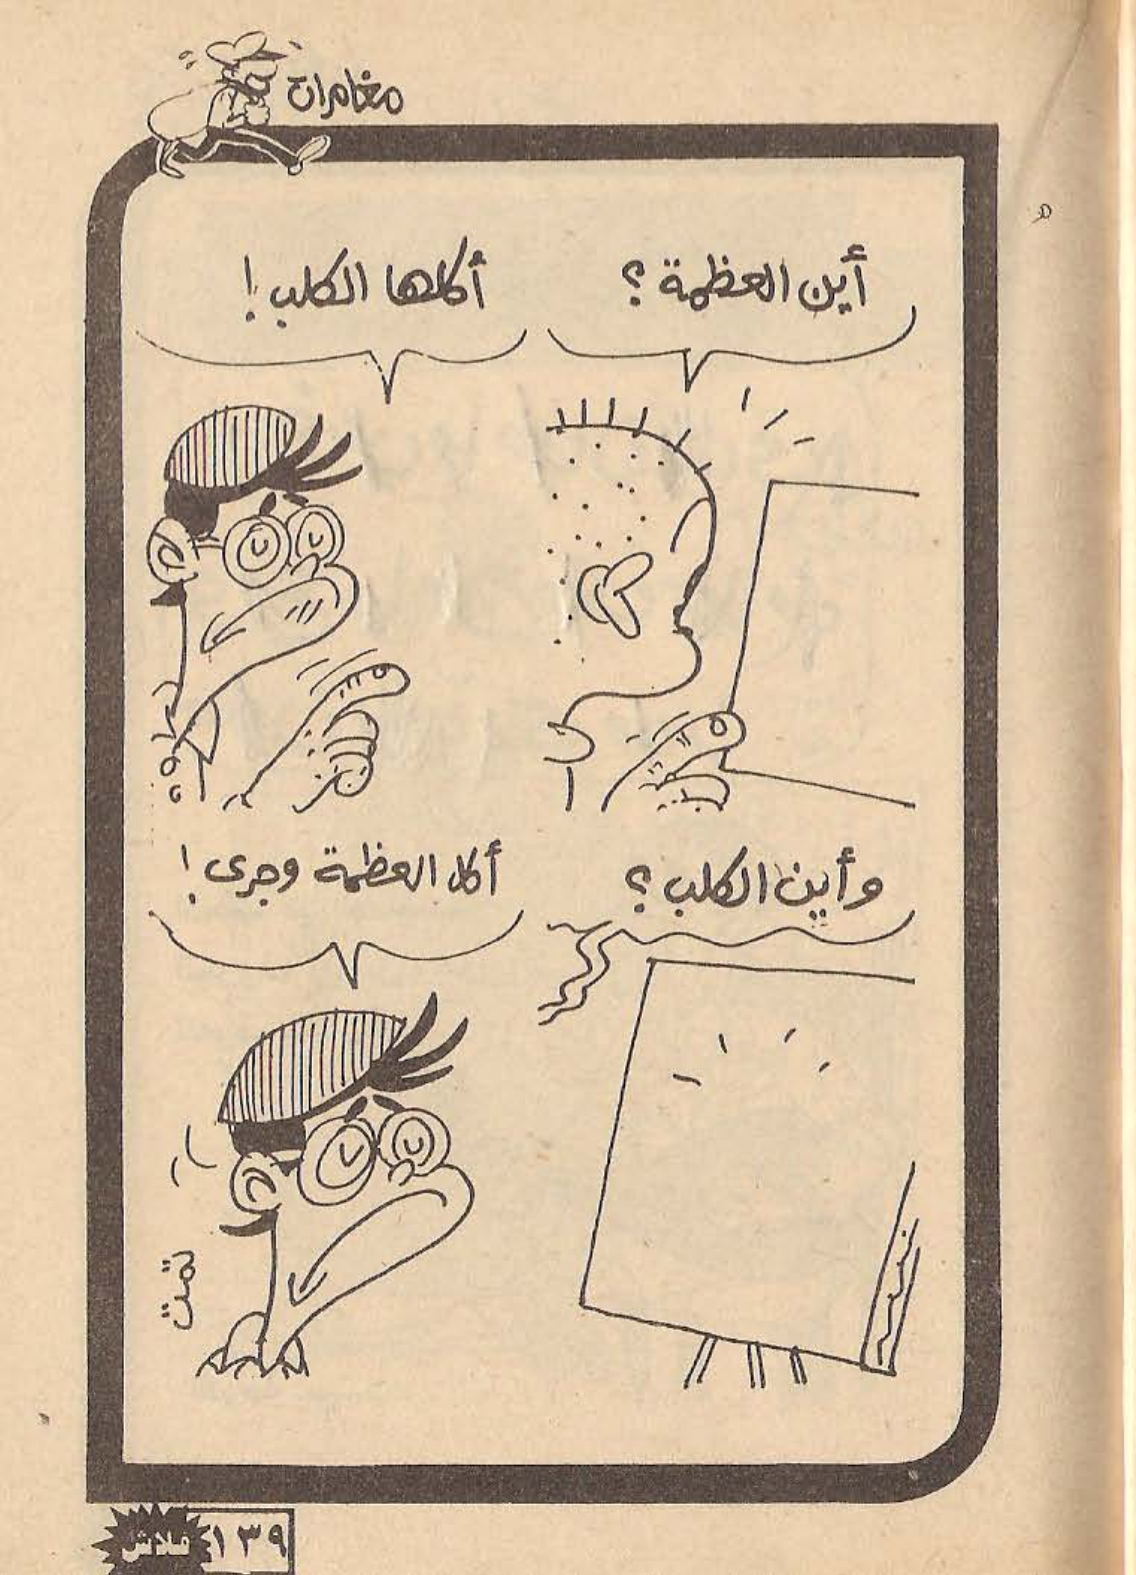 مغامرات
أين العظمة؟
أكلها الكلب!
وأين الكلب؟
أكل العظمة وجرى!
تمت
فلاش
١٣٩